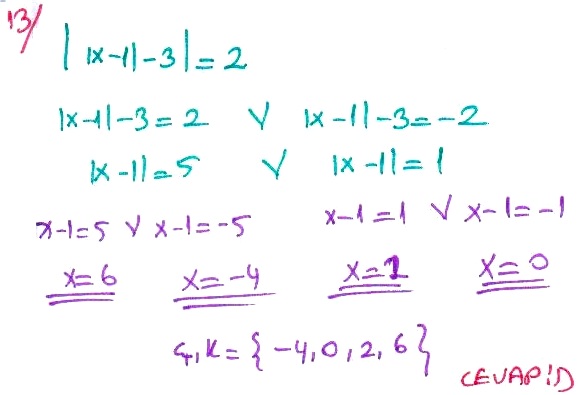 13/ ||x-1|-3|=2
|x-1|-3=2 V |x-1|-3=-2
|x-1|=5 V |x-1|=1
x-1=5 V x-1=-5 x-1=1 V x-1=-1
x=6 x=-4 x=2 x=0
Ç.K={-4,0,2,6}
CEVAP:D